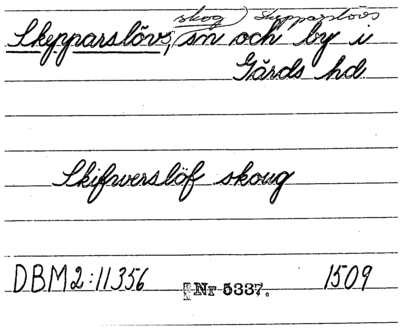 skog) Skepparslövs
Skepparslövs, sn och by i
Gärds hd.
Skifwerslöf skoug
DBM2:11356 Nr 5337. 1509